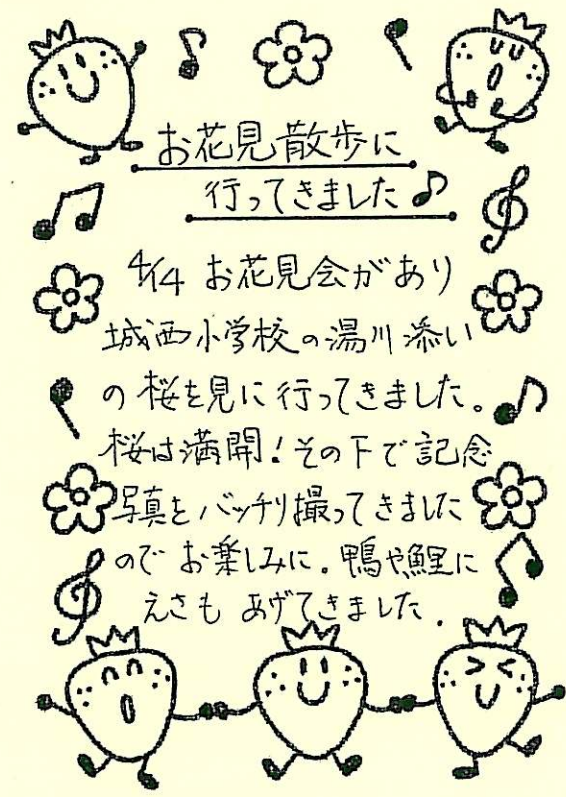 お花見散歩に
行ってきました♪
4/14 お花見会があり
城西小学校の湯川添い
の桜を見に行ってきました。
桜は満開！その下で記念
写真をバッチリ撮ってきました
のでお楽しみに。鴨や鯉に
えさもあげてきました.